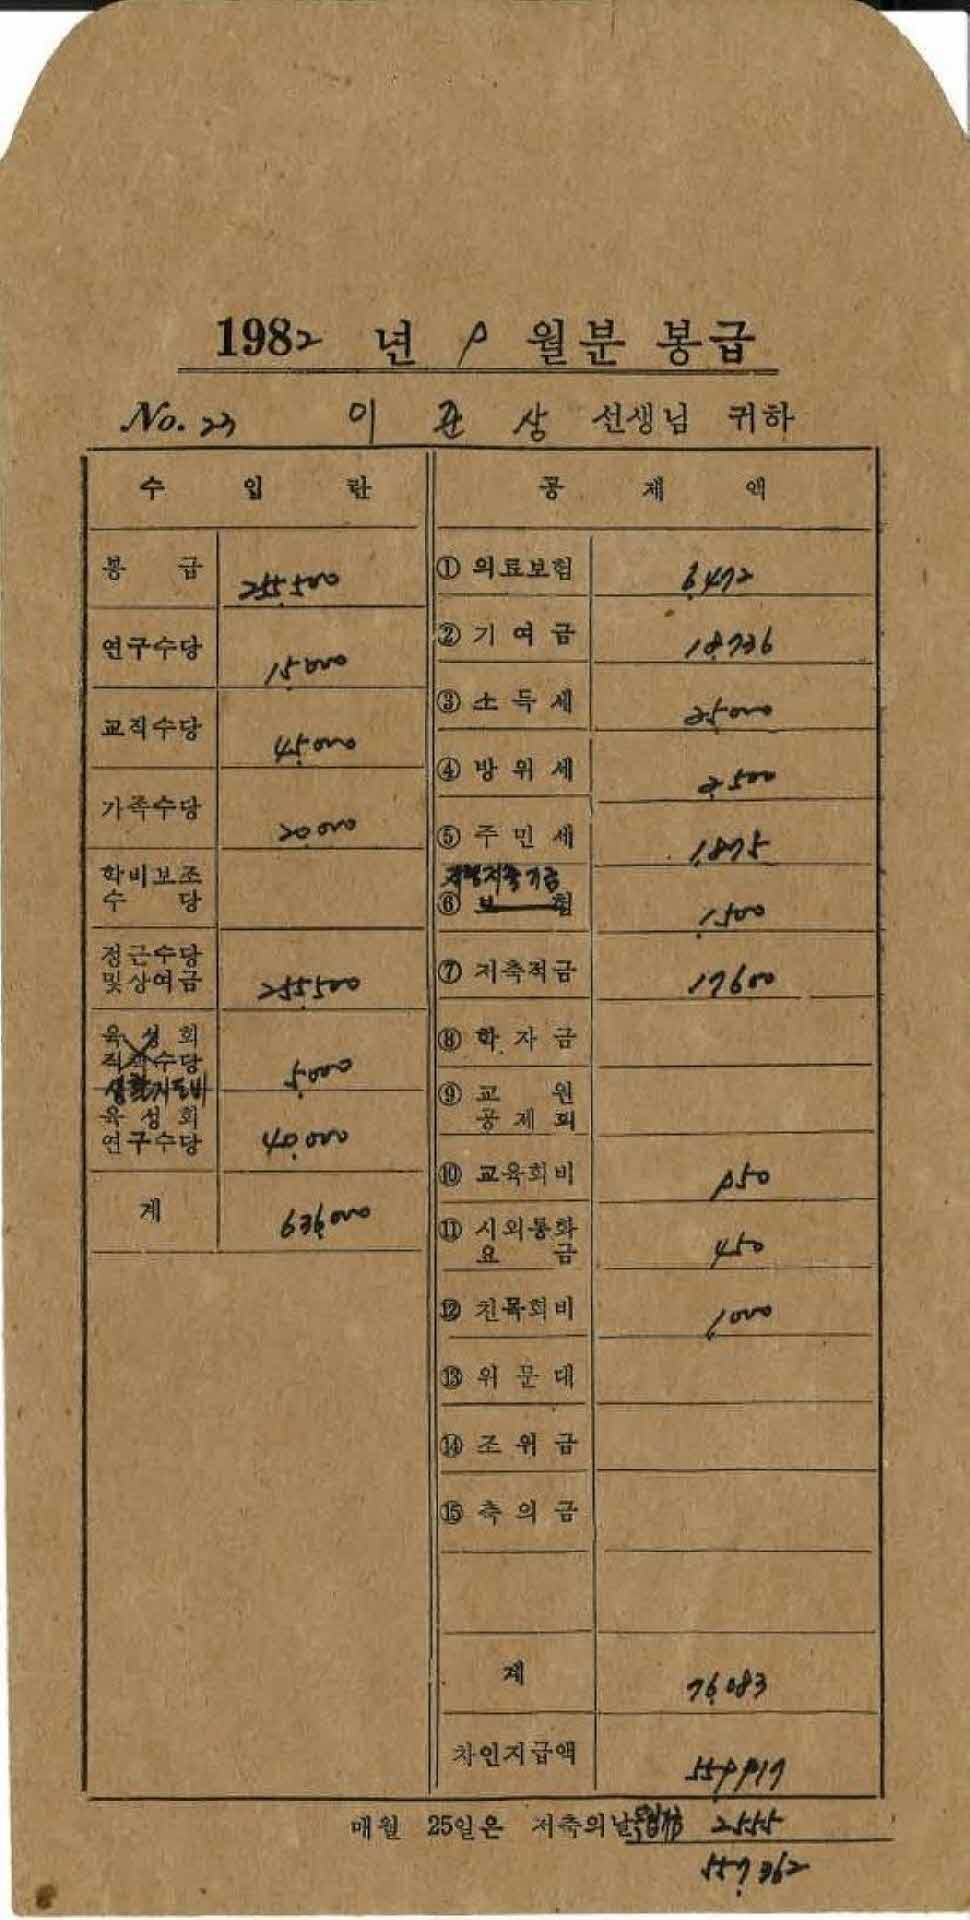 1982 년 9 월분 봉급
No. 23 이 관 상 선생님 귀하
수 입 란
봉 급 255,500
연구수당 15,000
교직수당 45,000
가족수당 20,000
학비보조
수 당
정근수당
및상여금 255,500
육성회
직책수당
생활지도비 5,000
육성회
연구수당 40,000
계 636,000
공 제 액
① 의료보험 6,472
② 기여금 18,736
③ 소득세 25,000
④ 방위세 2,500
⑤ 주민세 1,875
⑥ 보험 1,500
⑦ 저축적금 17,600
⑧ 학자금
⑨ 교원
공제회
⑩ 교육회비 950
⑪ 시외통화
요금 450
⑫ 친목회비 1,000
⑬ 위문대
⑭ 조위금
⑮ 축의금
계 76,083
차인지급액 559,917
매월 25일은 저축의날 2555
557,362